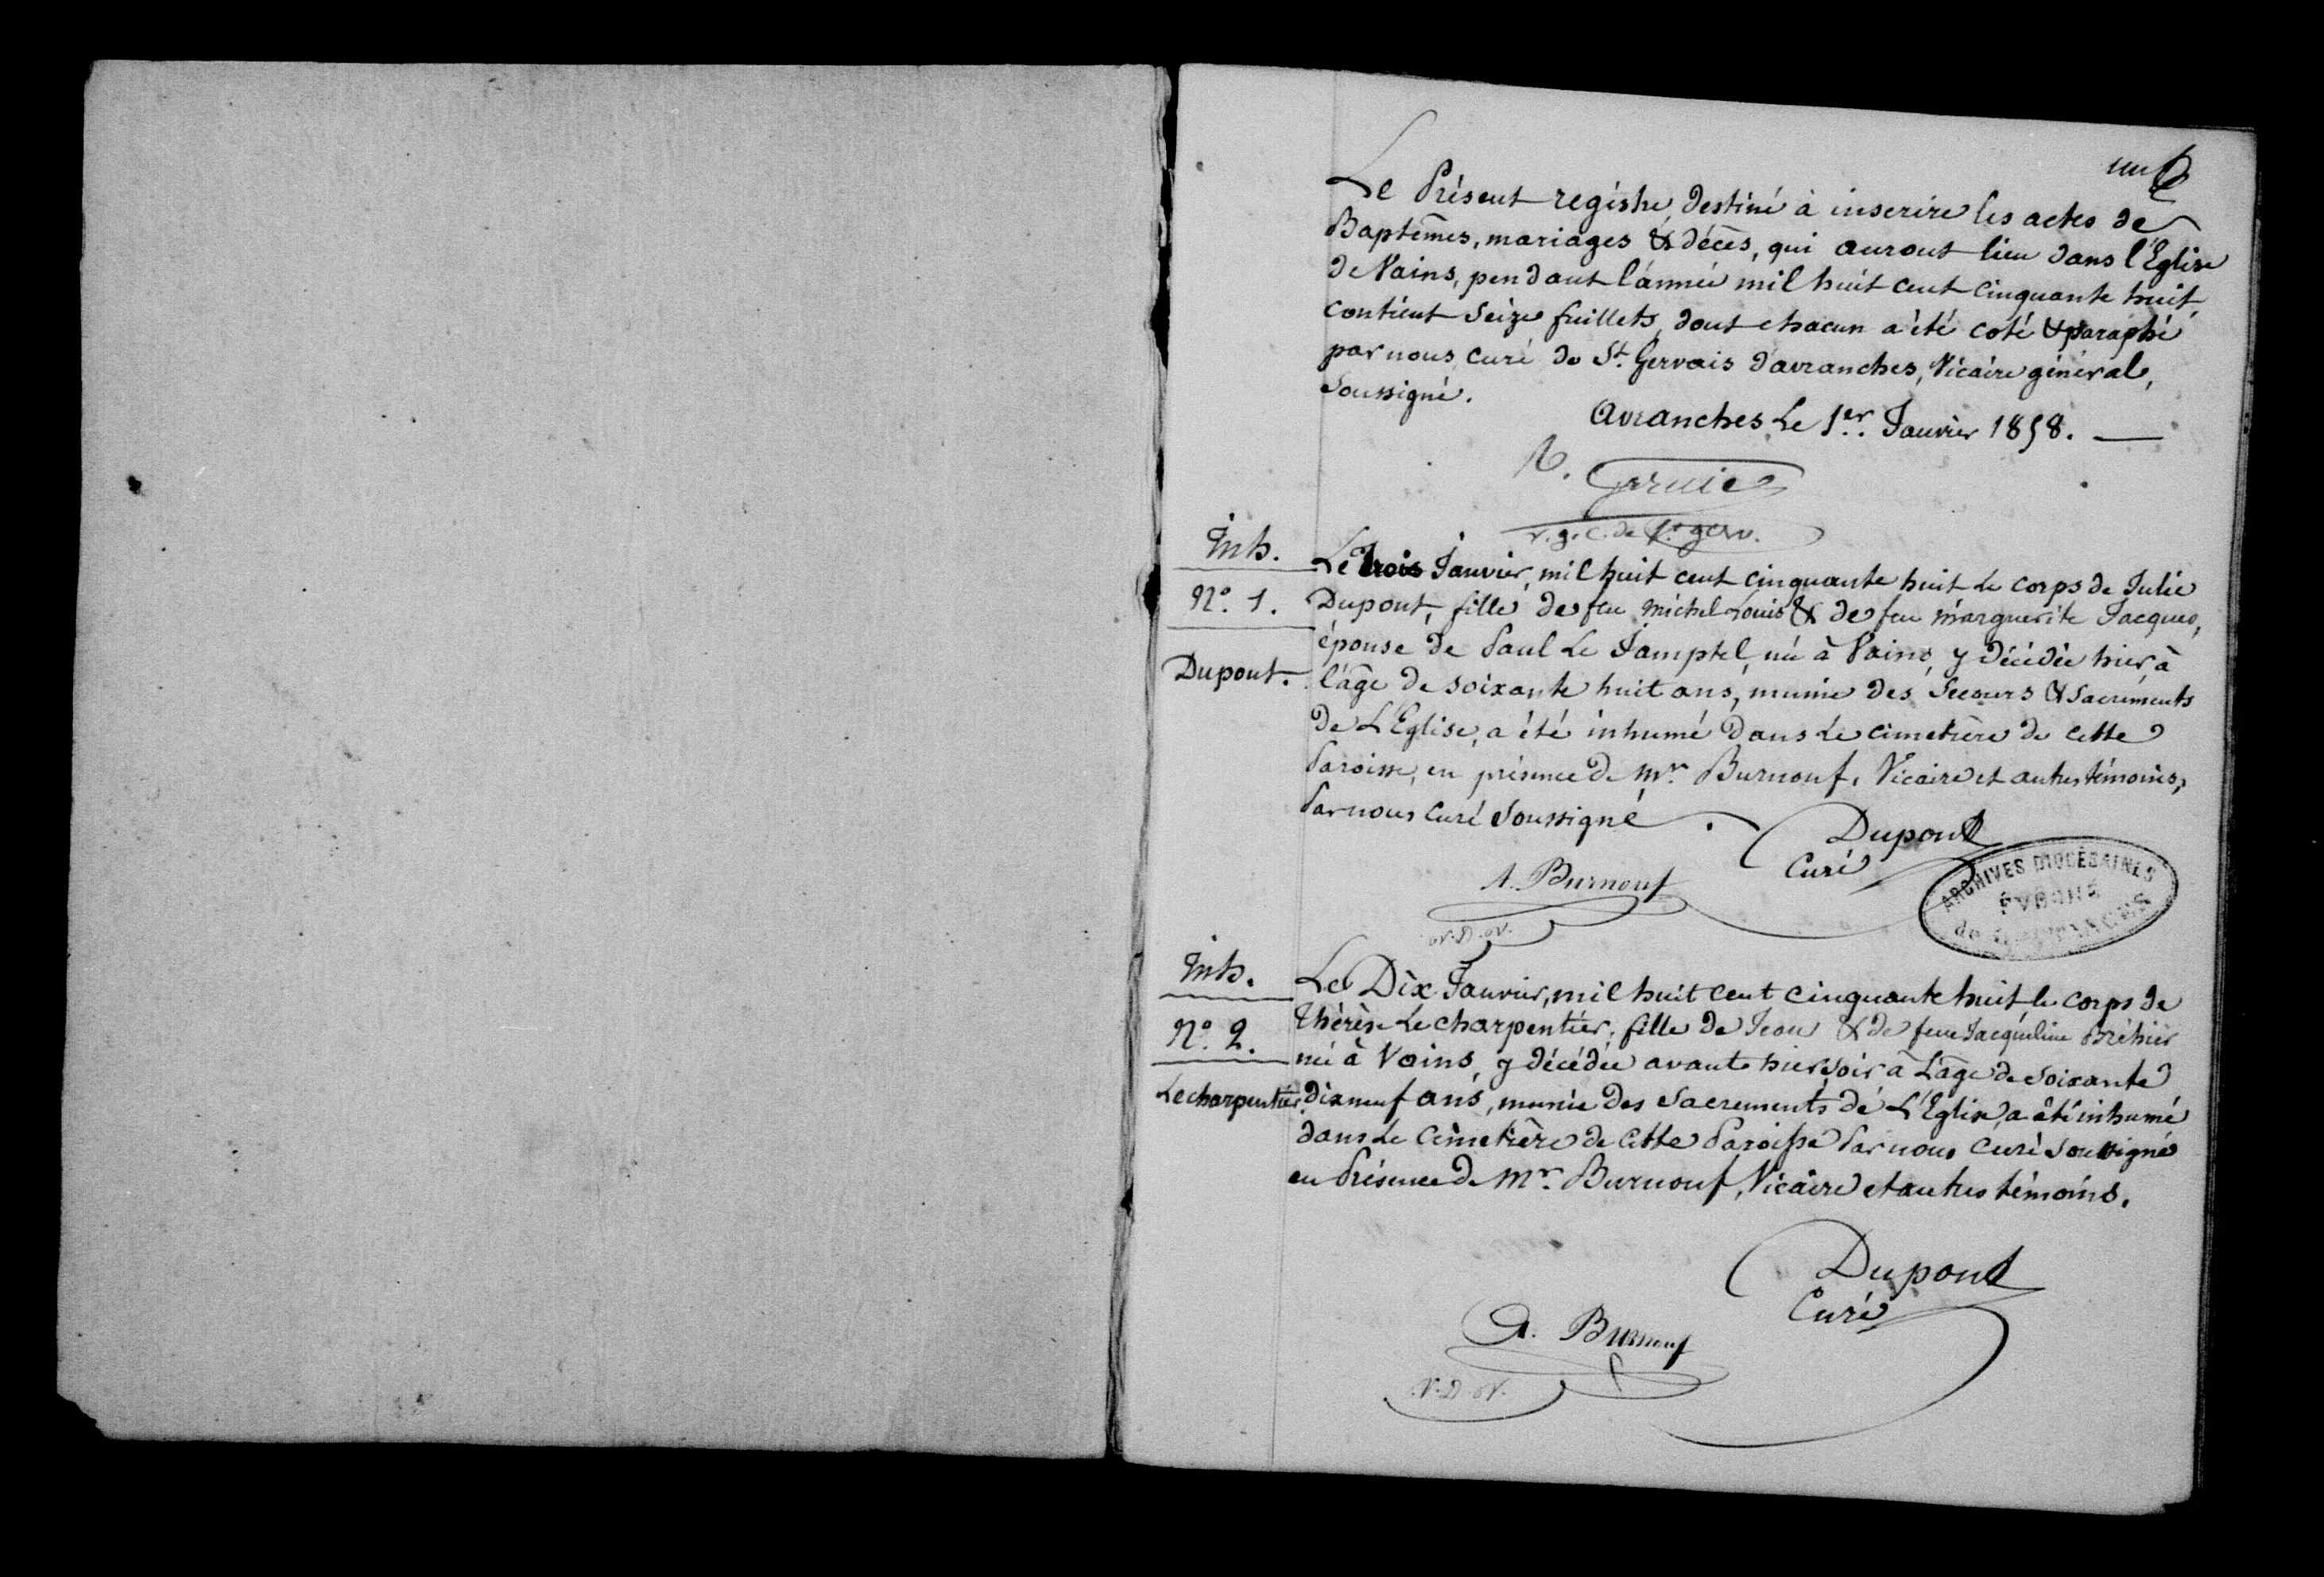 un
Le Présent registre, destiné à inscrire les actes de
Baptêmes, mariages & décès, qui auront lieu dans l'Eglise
de Vains, pendant l'année mil huit cent cinquante huit,
contient seize feuillets, dont chacun a été coté & paraphé
par nous curé de St. Gervais d'avranches, Vicaire général,
soussigné.
Avranches Le 1er. Janvier 1858.
v. g. C. de St. gerv.
Inh.
N°. 1.
Dupont.
Le trois Janvier, mil huit cent cinquante huit Le corps de Julie
Dupont, fille de feu Michel Louis & de feu marguerite Jacques,
épouse de Paul Le Jamptel, né à Vains, y décédée hier, à
l'âge de soixante huit ans, munie des secours & sacrements
de L'Eglise, a été inhumé dans Le cimetière de cette
Paroisse, en présence de Mr. Burnouf, Vicaire et autres témoins,
Par nous Curé soussigné.
Dupont
Curé
A. Burnouf
V. D. V.
ARCHIVES DIOCÉSAINES
de
Inh.
N°. 2.
Lecharpentier.
Le Dix Janvier, mil huit cent cinquante huit le corps de
Thérèse Lecharpentier, fille de Jean & de feue Jacqueline Bréhier
né à Vains, y décédée avant hier soir à L'âge de soixante
dix neuf ans, munie des Sacrements de L'Eglise, a été inhumé
dans Le cimetière de cette Paroisse Par nous Curé soussigné
en Présence de Mr. Burnouf, Vicaire et autres témoins.
Dupont
Curé
A. Burnouf
V. D. V.